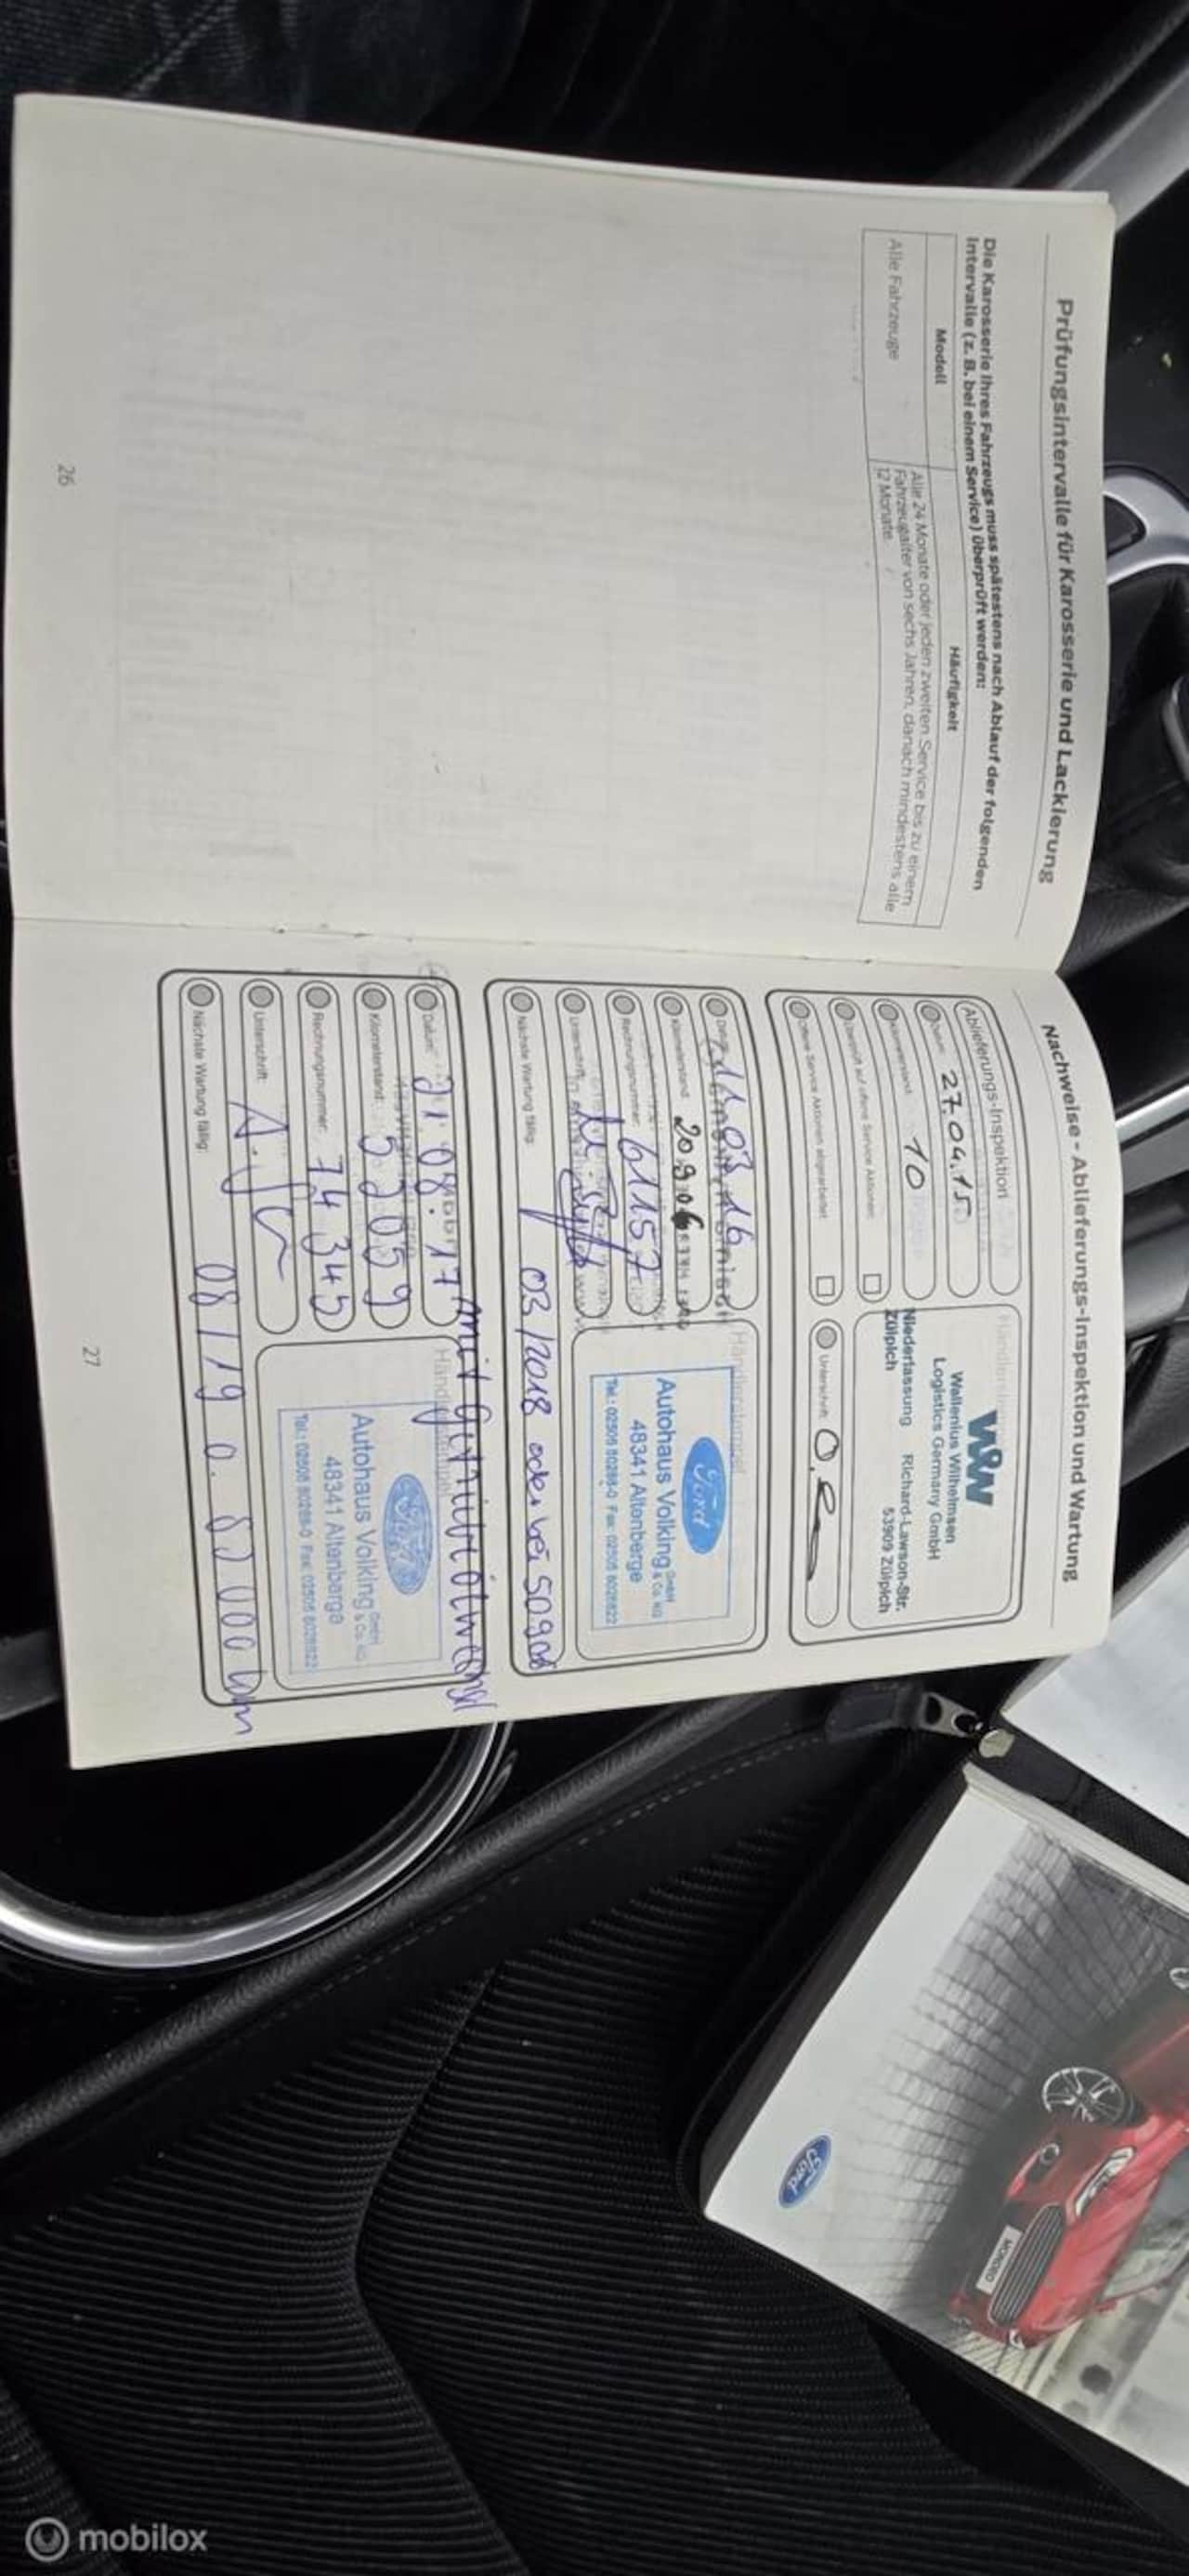 Prüfungsintervalle für Karosserie und Lackierung
Die Karosserie Ihres Fahrzeugs muss spätestens nach Ablauf der folgenden
Intervalle (z. B. bei einem Service) überprüft werden:
Modell
Häufigkeit
Alle Fahrzeuge
Alle 24 Monate oder jeden zweiten Service bis zu einem
Fahrzeugalter von sechs Jahren, danach mindestens alle
12 Monate.
26
Nachweise - Ablieferungs-Inspektion und Wartung
Ablieferungs-Inspektion
Datum: 27.04.15
Kilometerstand: 10
Überprüft auf offene Service Aktionen:
Offene Service Aktionen abgearbeitet
Wallenius Wilhelmsen
Logistics Germany GmbH
Niederlassung Richard-Lawson-Str.
Zülpich 53909 Zülpich
Unterschrift:
Datum: 03.16
Kilometerstand: 20906
Rechnungsnummer: 61157
Unterschrift:
Nächste Wartung fällig: 03/2018 oder bei 50.906
Händlerstempel
Ford
Autohaus Volking GmbH & Co. KG
48341 Altenberge
Tel.: 02505 80288-0 Fax: 02505 8028822
mit Getriebeölwechsel
Datum: 21.08.17
Kilometerstand: 52059
Rechnungsnummer: 74345
Unterschrift:
Nächste Wartung fällig: 08/19 o. 82000 km
Händlerstempel
Ford
Autohaus Volking GmbH & Co. KG
48341 Altenberge
Tel.: 02505 80288-0 Fax: 02505 8028822
27
Ford
MONDEO
mobilox